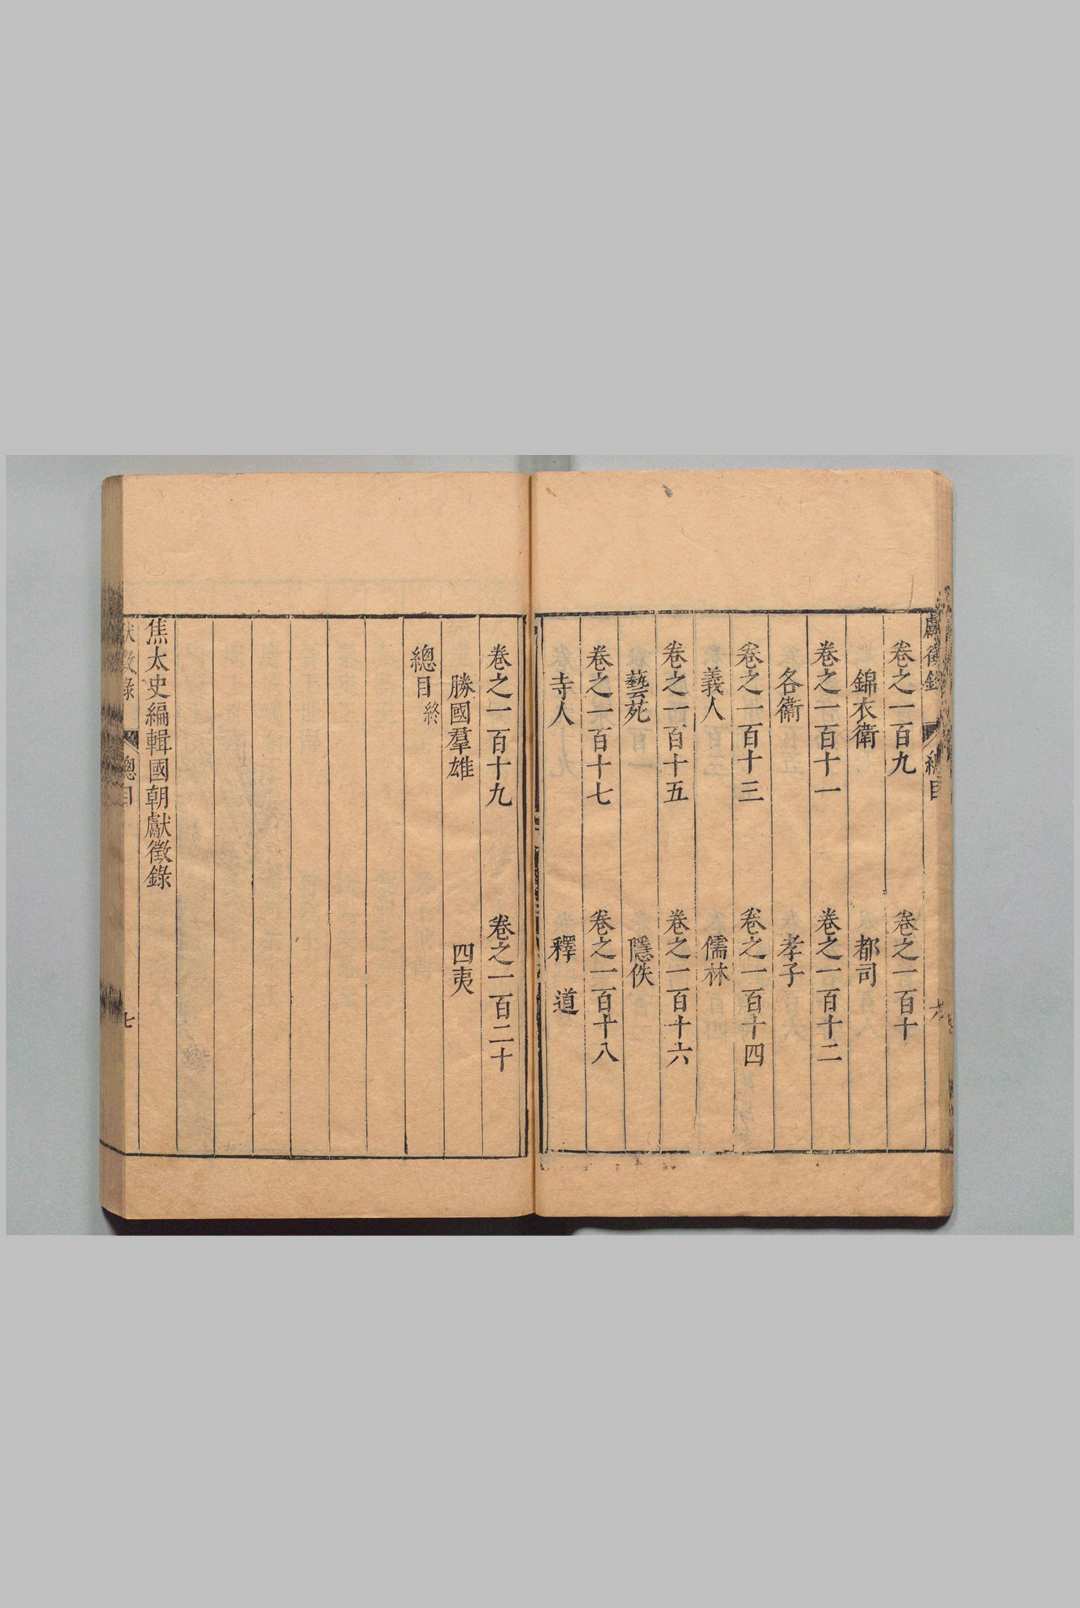 獻徵錄 總目 六
卷之一百九 卷之一百十
錦衣衛 都司
卷之一百十一 卷之一百十二
各衛 孝子
卷之一百十三 卷之一百十四
義人 儒林
卷之一百十五 卷之一百十六
藝苑 隱佚
卷之一百十七 卷之一百十八
寺人 釋 道
卷之一百十九 卷之一百二十
勝國羣雄 四夷
總目終
焦太史編輯國朝獻徵錄
獻徵錄 總目 七